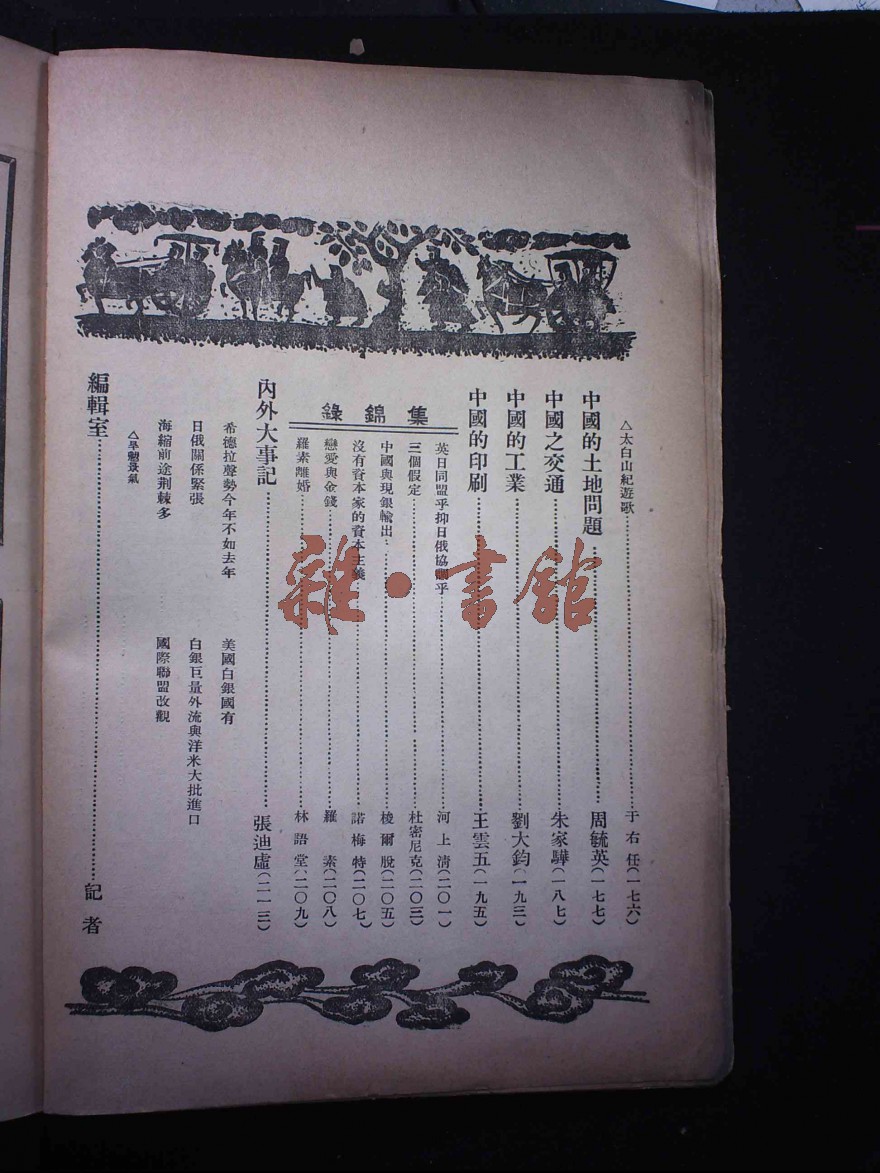 △太白山紀遊歌……于右任(一七六)
中國的土地問題……周毓英(一七七)
中國之交通……朱家驊(一八七)
中國的工業……劉大鈞(一九三)
中國的印刷……王雲五(一九五)
集錦錄
英日同盟乎抑日俄協調乎……河上清(二〇一)
三個假定……杜密尼克(二〇三)
中國與現銀輸出……梭爾脫(二〇五)
沒有資本家的資本主義……諾梅特(二〇七)
戀愛與金錢……羅素(二〇八)
羅素離婚……林語堂(二〇九)
內外大事記……張迪虛(二一三)
希德拉聲勢今年不如去年 美國白銀國有
日俄關係緊張 白銀巨量外流與洋米大批進口
海縮前途荆棘多 國際聯盟改觀
△旱魃景氣
編輯室……記者
雜·書館